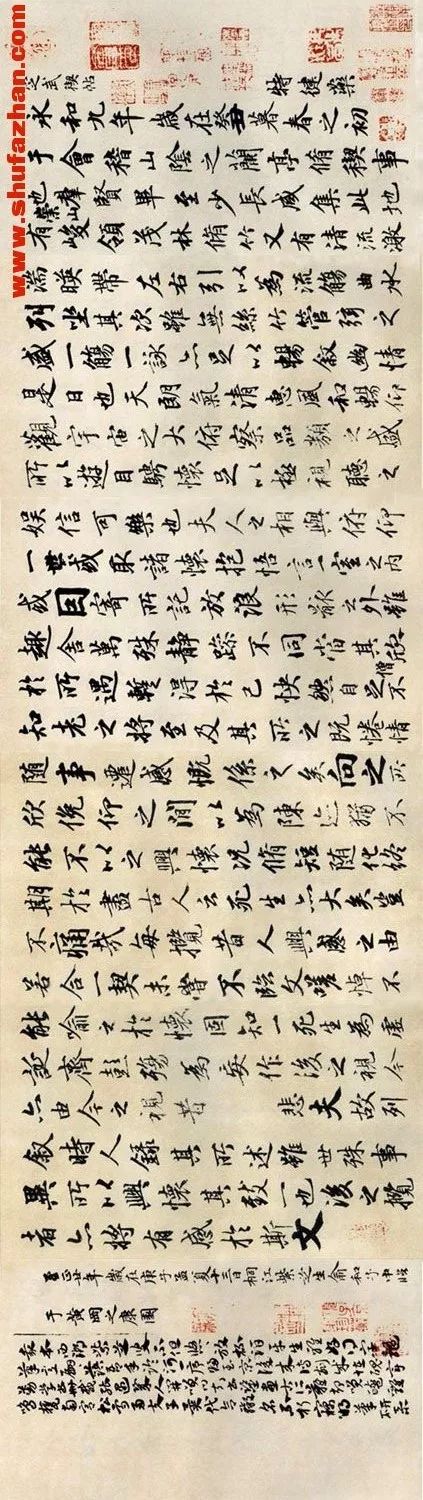 www.shufazhan.com
定武稧帖 特健藥
永和九年歲在癸丑暮春之初
于會稽山陰之蘭亭脩稧事
也羣賢畢至少長咸集此地
有崇山峻領茂林脩竹又有清流激
湍暎帶左右引以為流觴曲水
列坐其次雖無絲竹管弦之
盛一觴一詠亦足以暢敘幽情
是日也天朗氣清惠風和暢仰
觀宇宙之大俯察品類之盛
所以遊目騁懷足以極視聽之
娛信可樂也夫人之相與俯仰
一世或取諸懷抱悟言一室之內
或因寄所託放浪形骸之外雖
趣舍萬殊靜躁不同當其欣
於所遇蹔得於己怏然自足不
僧
知老之將至及其所之既惓情
隨事遷感慨係之矣向之所
欣俛仰之間以為陳迹猶不
能不以之興懷況脩短隨化終
期於盡古人云死生亦大矣豈
不痛哉每攬昔人興感之由
若合一契未嘗不臨文嗟悼不
能喻之於懷固知一死生為虛
誕齊彭殤為妄作後之視今
亦由今之視昔 悲夫故列
敘時人錄其所述雖世殊事
異所以興懷其致一也後之攬
者亦將有感於斯文
至正廿年歲在庚子孟夏十三日桐江紫芝生俞和子中臨
于黃岡之康園